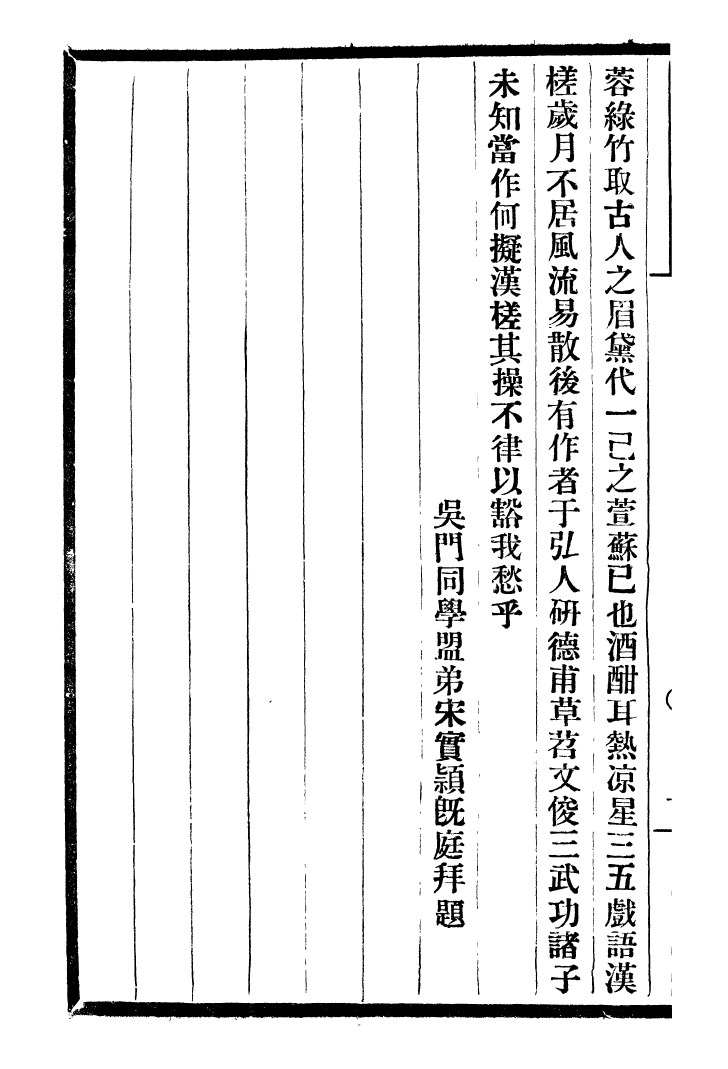 蓉綠竹取古人之眉黛代一己之萱蘇已也酒酣耳熱凉星三五戲語漢
槎歲月不居風流易散後有作者于弘人研德甫草苕文俊三武功諸子
未知當作何擬漢槎其操不律以豁我愁乎
吳門同學盟弟宋實穎旣庭拜題